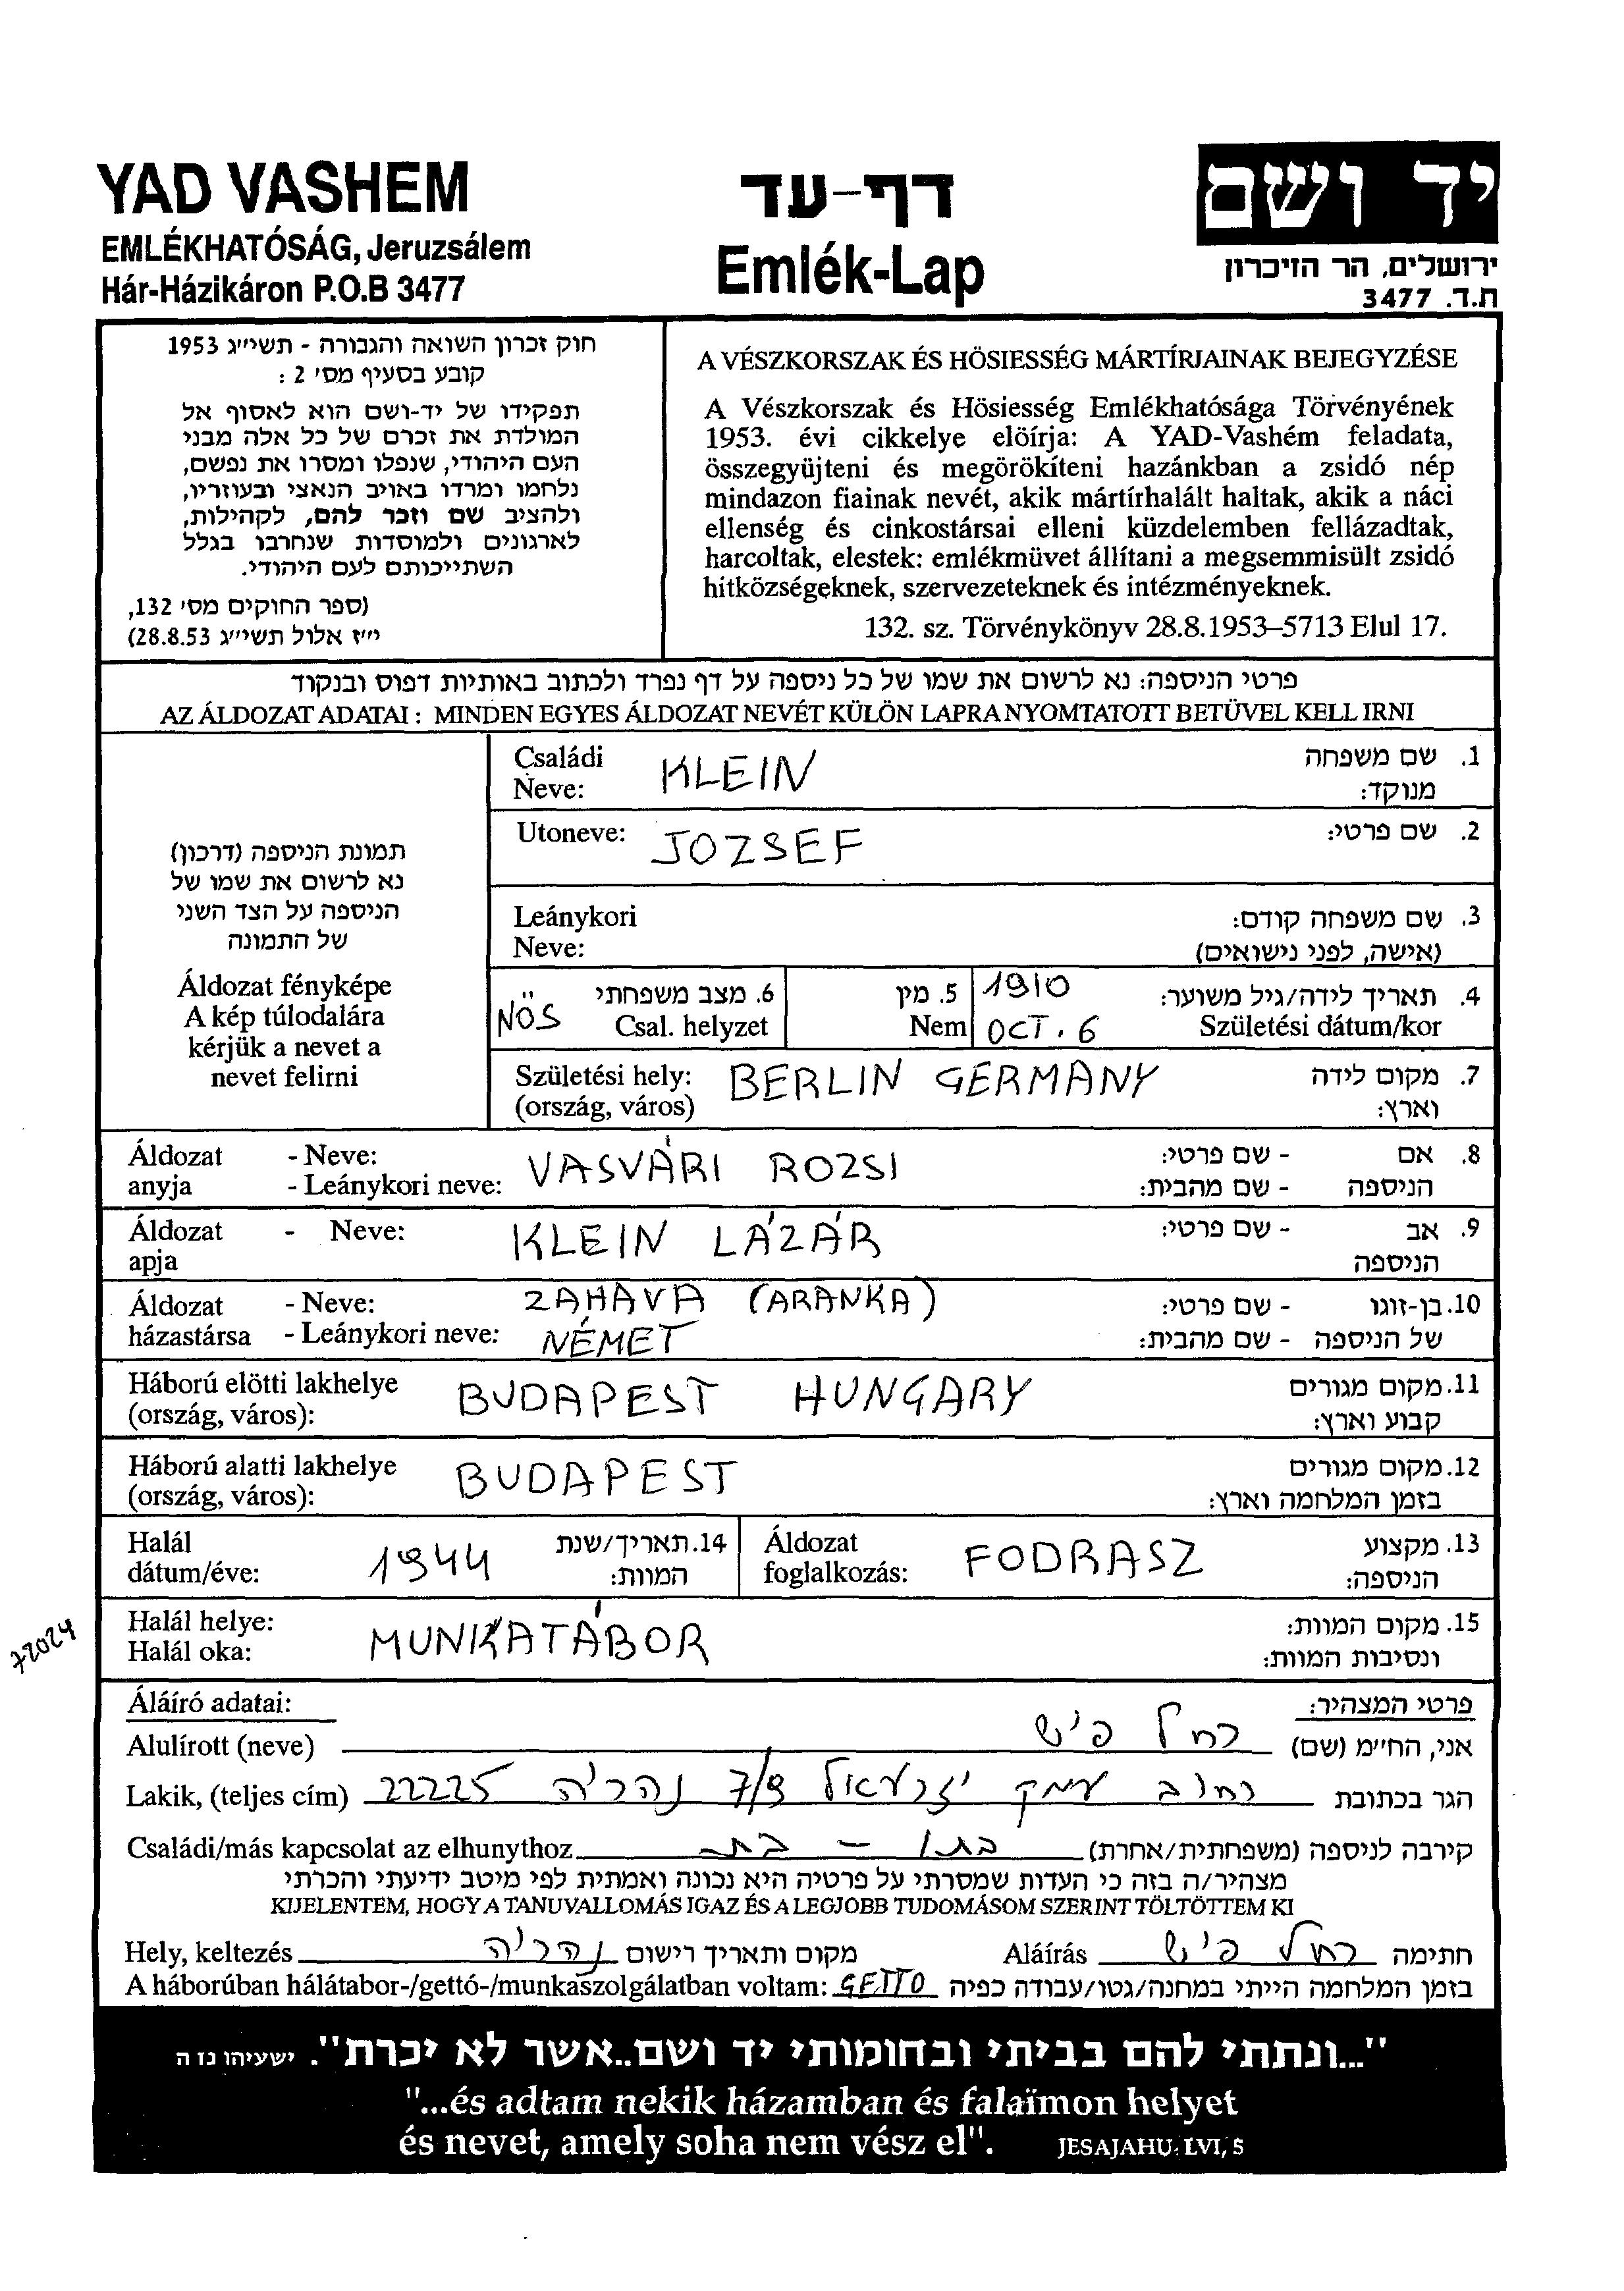 YAD VASHEM
EMLÉKHATÓSÁG, Jeruzsálem
Hár-Házikáron P.O.B 3477
דף-עד
Emlék-Lap
יד ושם
ירושלים, הר הזיכרון
ת.ד. 3477
חוק זכרון השואה והגבורה - תשי״ג 1953
קובע בסעיף מס׳ 2 :
תפקידו של יד-ושם הוא לאסוף אל
המולדת את זכרם של כל אלה מבני
העם היהודי, שנפלו ומסרו את נפשם,
נלחמו ומרדו באויב הנאצי ובעוזריו,
ולהציב שם וזכר להם, לקהילות,
לארגונים ולמוסדות שנחרבו בגלל
השתייכותם לעם היהודי.
(ספר החוקים מס׳ 132,
י״ז אלול תשי״ג 28.8.53)
A VÉSZKORSZAK ÉS HÖSIESSÉG MÁRTÍRJAINAK BEJEGYZÉSE
A Vészkorszak és Hösiesség Emlékhatósága Törvényének
1953. évi cikkelye elöírja: A YAD-Vashém feladata,
összegyüjteni és megörökíteni hazánkban a zsidó nép
mindazon fiainak nevét, akik mártírhalált haltak, akik a náci
ellenség és cinkostársai elleni küzdelemben fellázadtak,
harcoltak, elestek: emlékmüvet állítani a megsemmisült zsidó
hitközségeknek, szervezeteknek és intézményeknek.
132. sz. Törvénykönyv 28.8.1953–5713 Elul 17.
פרטי הניספה: נא לרשום את שמו של כל ניספה על דף נפרד ולכתוב באותיות דפוס ובנקוד
AZ ÁLDOZAT ADATAI : MINDEN EGYES ÁLDOZAT NEVÉT KÜLÖN LAPRA NYOMTATOTT BETÜVEL KELL IRNI
תמונת הניספה (דרכון)
נא לרשום את שמו של
הניספה על הצד השני
של התמונה
Áldozat fényképe
A kép túlodalára
kérjük a nevet a
nevet felirni
Családi KLEIN 1. שם משפחה
Neve: מנוקד:
Utoneve: JOZSEF 2. שם פרטי:
Leánykori 3. שם משפחה קודם:
Neve: (אישה, לפני נישואים)
NÖS 6. מצב משפחתי 5. מין 1910 4. תאריך לידה/גיל משוער:
Csal. helyzet Nem OCT. 6 Születési dátum/kor
Születési hely: BERLIN GERMANY 7. מקום לידה
(ország, város) וארץ:
Áldozat - Neve: VASVÁRI ROZSI 8. אם - שם פרטי:
anyja - Leánykori neve: הניספה - שם מהבית:
Áldozat - Neve: KLEIN LÁZÁR 9. אב - שם פרטי:
apja הניספה
Áldozat - Neve: ZAHAVA (ARANKA) 10. בן-זוגו - שם פרטי:
házastársa - Leánykori neve: NÉMET של הניספה - שם מהבית:
Háború elötti lakhelye BUDAPEST HUNGARY 11. מקום מגורים
(ország, város): קבוע וארץ:
Háború alatti lakhelye BUDAPEST 12. מקום מגורים
(ország, város): בזמן המלחמה וארץ:
Halál 1944 14. תאריך/שנת Áldozat FODRASZ 13. מקצוע
dátum/éve: המוות: foglalkozás: הניספה:
Halál helye: MUNKATÁBOR 15. מקום המוות:
Halál oka: ונסיבות המוות:
72024
Áláíró adatai: פרטי המצהיר:
Alulírott (neve) רחל פיש אני, החי״מ (שם)
Lakik, (teljes cím) רחוב עמק יזרעאל 7/9 נהריה 22225 הגר בכתובת
Családi/más kapcsolat az elhunythoz בתו - בת קירבה לניספה (משפחתית/אחרת)
מצהיר/ה בזה כי העדות שמסרתי על פרטיה היא נכונה ואמתית לפי מיטב ידיעתי והכרתי
KIJELENTEM, HOGY A TANUVALLOMÁS IGAZ ÉS A LEGJOBB TUDOMÁSOM SZERINT TÖLTÖTTEM KI
Hely, keltezés נהריה מקום ותאריך רישום Aláírás רחל פיש חתימה
A háborúban hálátabor-/gettó-/munkaszolgálatban voltam: GETTO בזמן המלחמה הייתי במחנה/גטו/עבודה כפיה
"...ונתתי להם בביתי ובחומותי יד ושם..אשר לא יכרת". ישעיהו נז ה
"...és adtam nekik házamban és falaïmon helyet
és nevet, amely soha nem vész el". JESAJAHU: LVI, 5